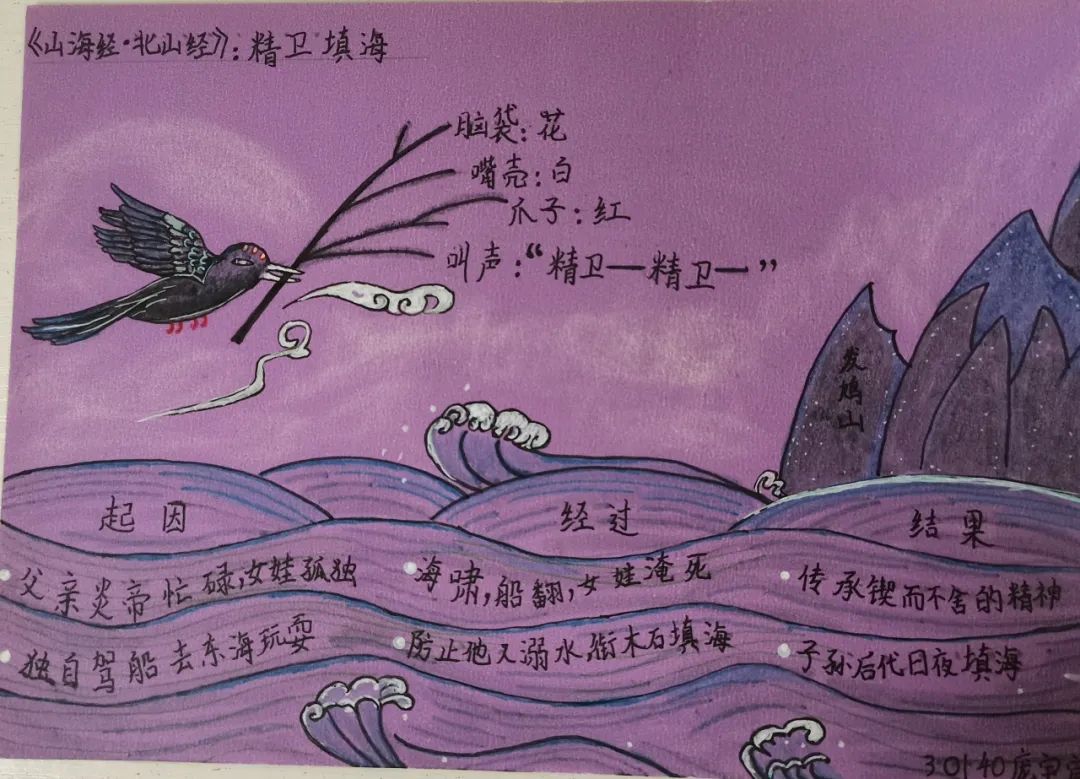 《山海经·北山经》：精卫填海
脑袋：花
嘴壳：白
爪子：红
叫声：“精卫—精卫—”
发鸠山
起因
经过
结果
父亲炎帝忙碌，女娃孤独
海啸，船翻，女娃淹死
传承锲而不舍的精神
独自驾船去东海玩耍
防止他人溺水衔木石填海
子孙后代日夜填海